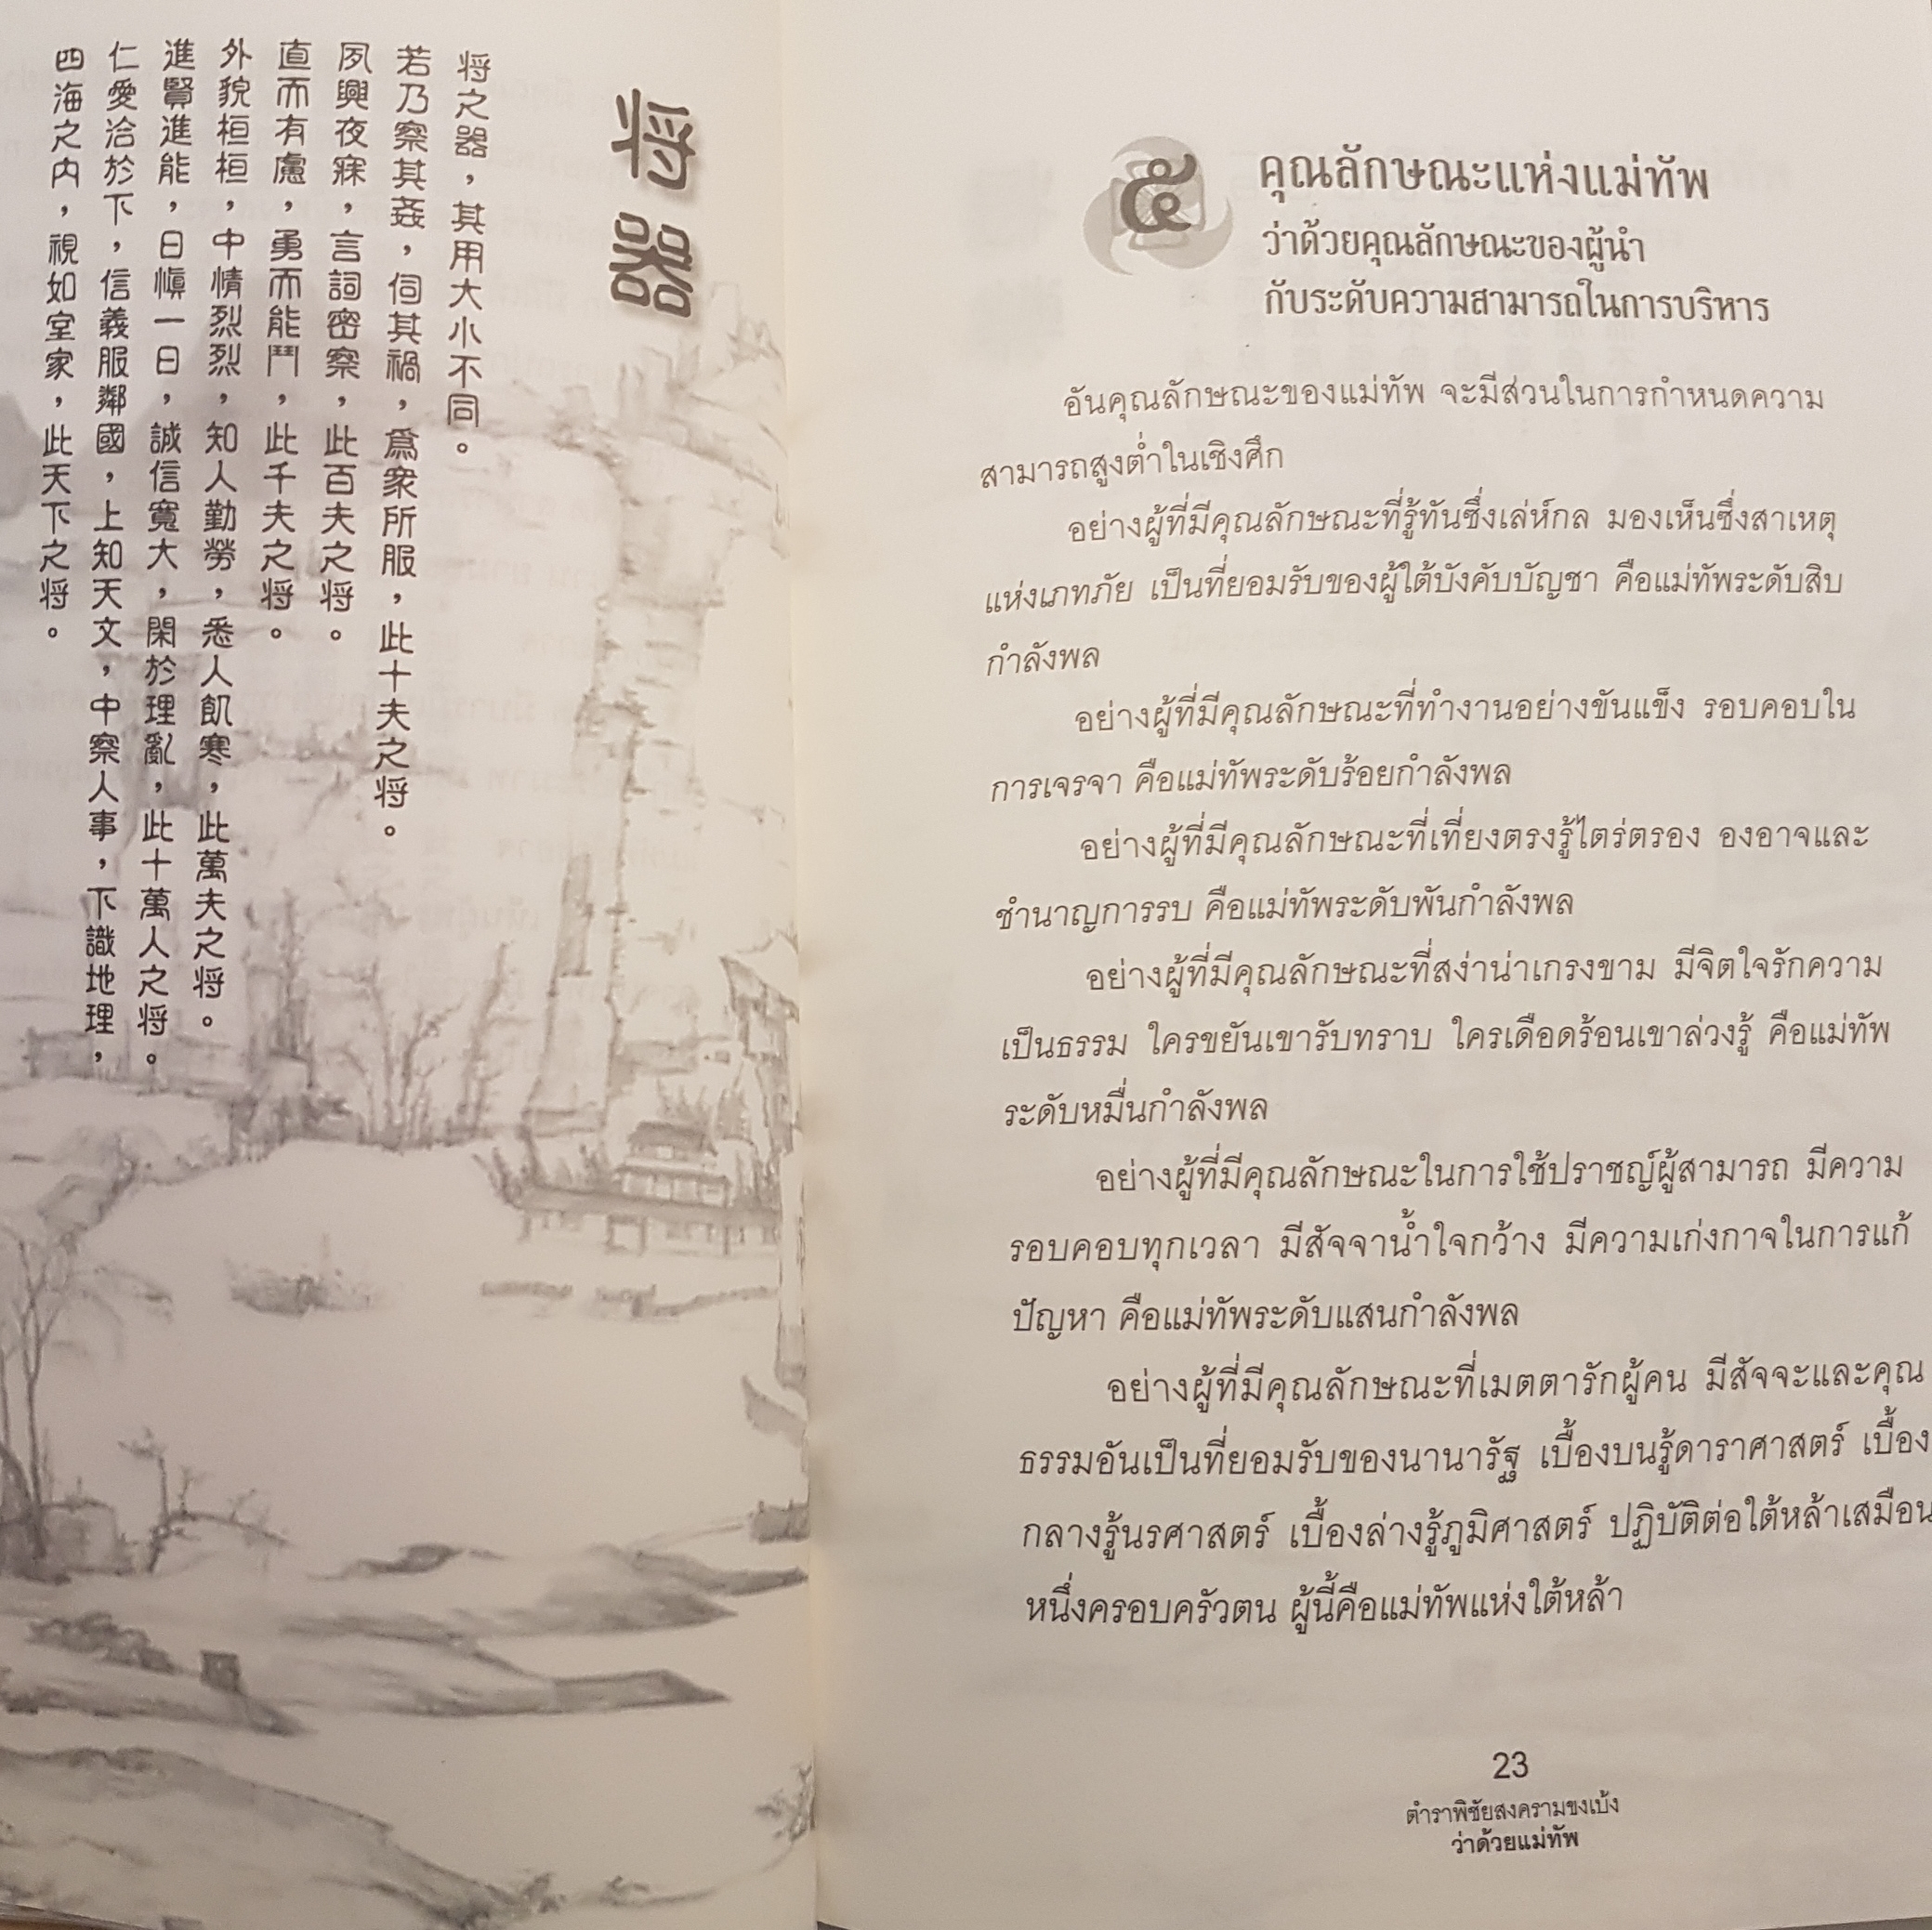 將器
將之器，其用大小不同。
若乃察其姦，伺其禍，爲衆所服，此十夫之將。
夙興夜寐，言詞密察，此百夫之將。
直而有慮，勇而能鬥，此千夫之將。
外貌桓桓，中情烈烈，知人勤勞，悉人飢寒，此萬夫之將。
進賢進能，日慎一日，誠信寬大，閑於理亂，此十萬人之將。
仁愛洽於下，信義服鄰國，上知天文，中察人事，下識地理，
四海之内，視如室家，此天下之將。
๕
คุณลักษณะแห่งแม่ทัพ
ว่าด้วยคุณลักษณะของผู้นำ
กับระดับความสามารถในการบริหาร
อันคุณลักษณะของแม่ทัพ จะมีส่วนในการกำหนดความ
สามารถสูงต่ำในเชิงศึก
อย่างผู้ที่มีคุณลักษณะที่รู้ทันซึ่งเล่ห์กล มองเห็นซึ่งสาเหตุ
แห่งเภทภัย เป็นที่ยอมรับของผู้ใต้บังคับบัญชา คือแม่ทัพระดับสิบ
กำลังพล
อย่างผู้ที่มีคุณลักษณะที่ทำงานอย่างขันแข็ง รอบคอบใน
การเจรจา คือแม่ทัพระดับร้อยกำลังพล
อย่างผู้ที่มีคุณลักษณะที่เที่ยงตรงรู้ไตร่ตรอง องอาจและ
ชำนาญการรบ คือแม่ทัพระดับพันกำลังพล
อย่างผู้ที่มีคุณลักษณะที่สง่าน่าเกรงขาม มีจิตใจรักความ
เป็นธรรม ใครขยันเขารับทราบ ใครเดือดร้อนเขาล่วงรู้ คือแม่ทัพ
ระดับหมื่นกำลังพล
อย่างผู้ที่มีคุณลักษณะในการใช้ปราชญ์ผู้สามารถ มีความ
รอบคอบทุกเวลา มีสัจจาน้ำใจกว้าง มีความเก่งกาจในการแก้
ปัญหา คือแม่ทัพระดับแสนกำลังพล
อย่างผู้ที่มีคุณลักษณะที่เมตตารักผู้คน มีสัจจะและคุณ
ธรรมอันเป็นที่ยอมรับของนานารัฐ เบื้องบนรู้ดาราศาสตร์ เบื้อง
กลางรู้นรศาสตร์ เบื้องล่างรู้ภูมิศาสตร์ ปฏิบัติต่อใต้หล้าเสมือน
หนึ่งครอบครัวตน ผู้นี้คือแม่ทัพแห่งใต้หล้า
23
ตำราพิชัยสงครามขงเบ้ง
ว่าด้วยแม่ทัพ